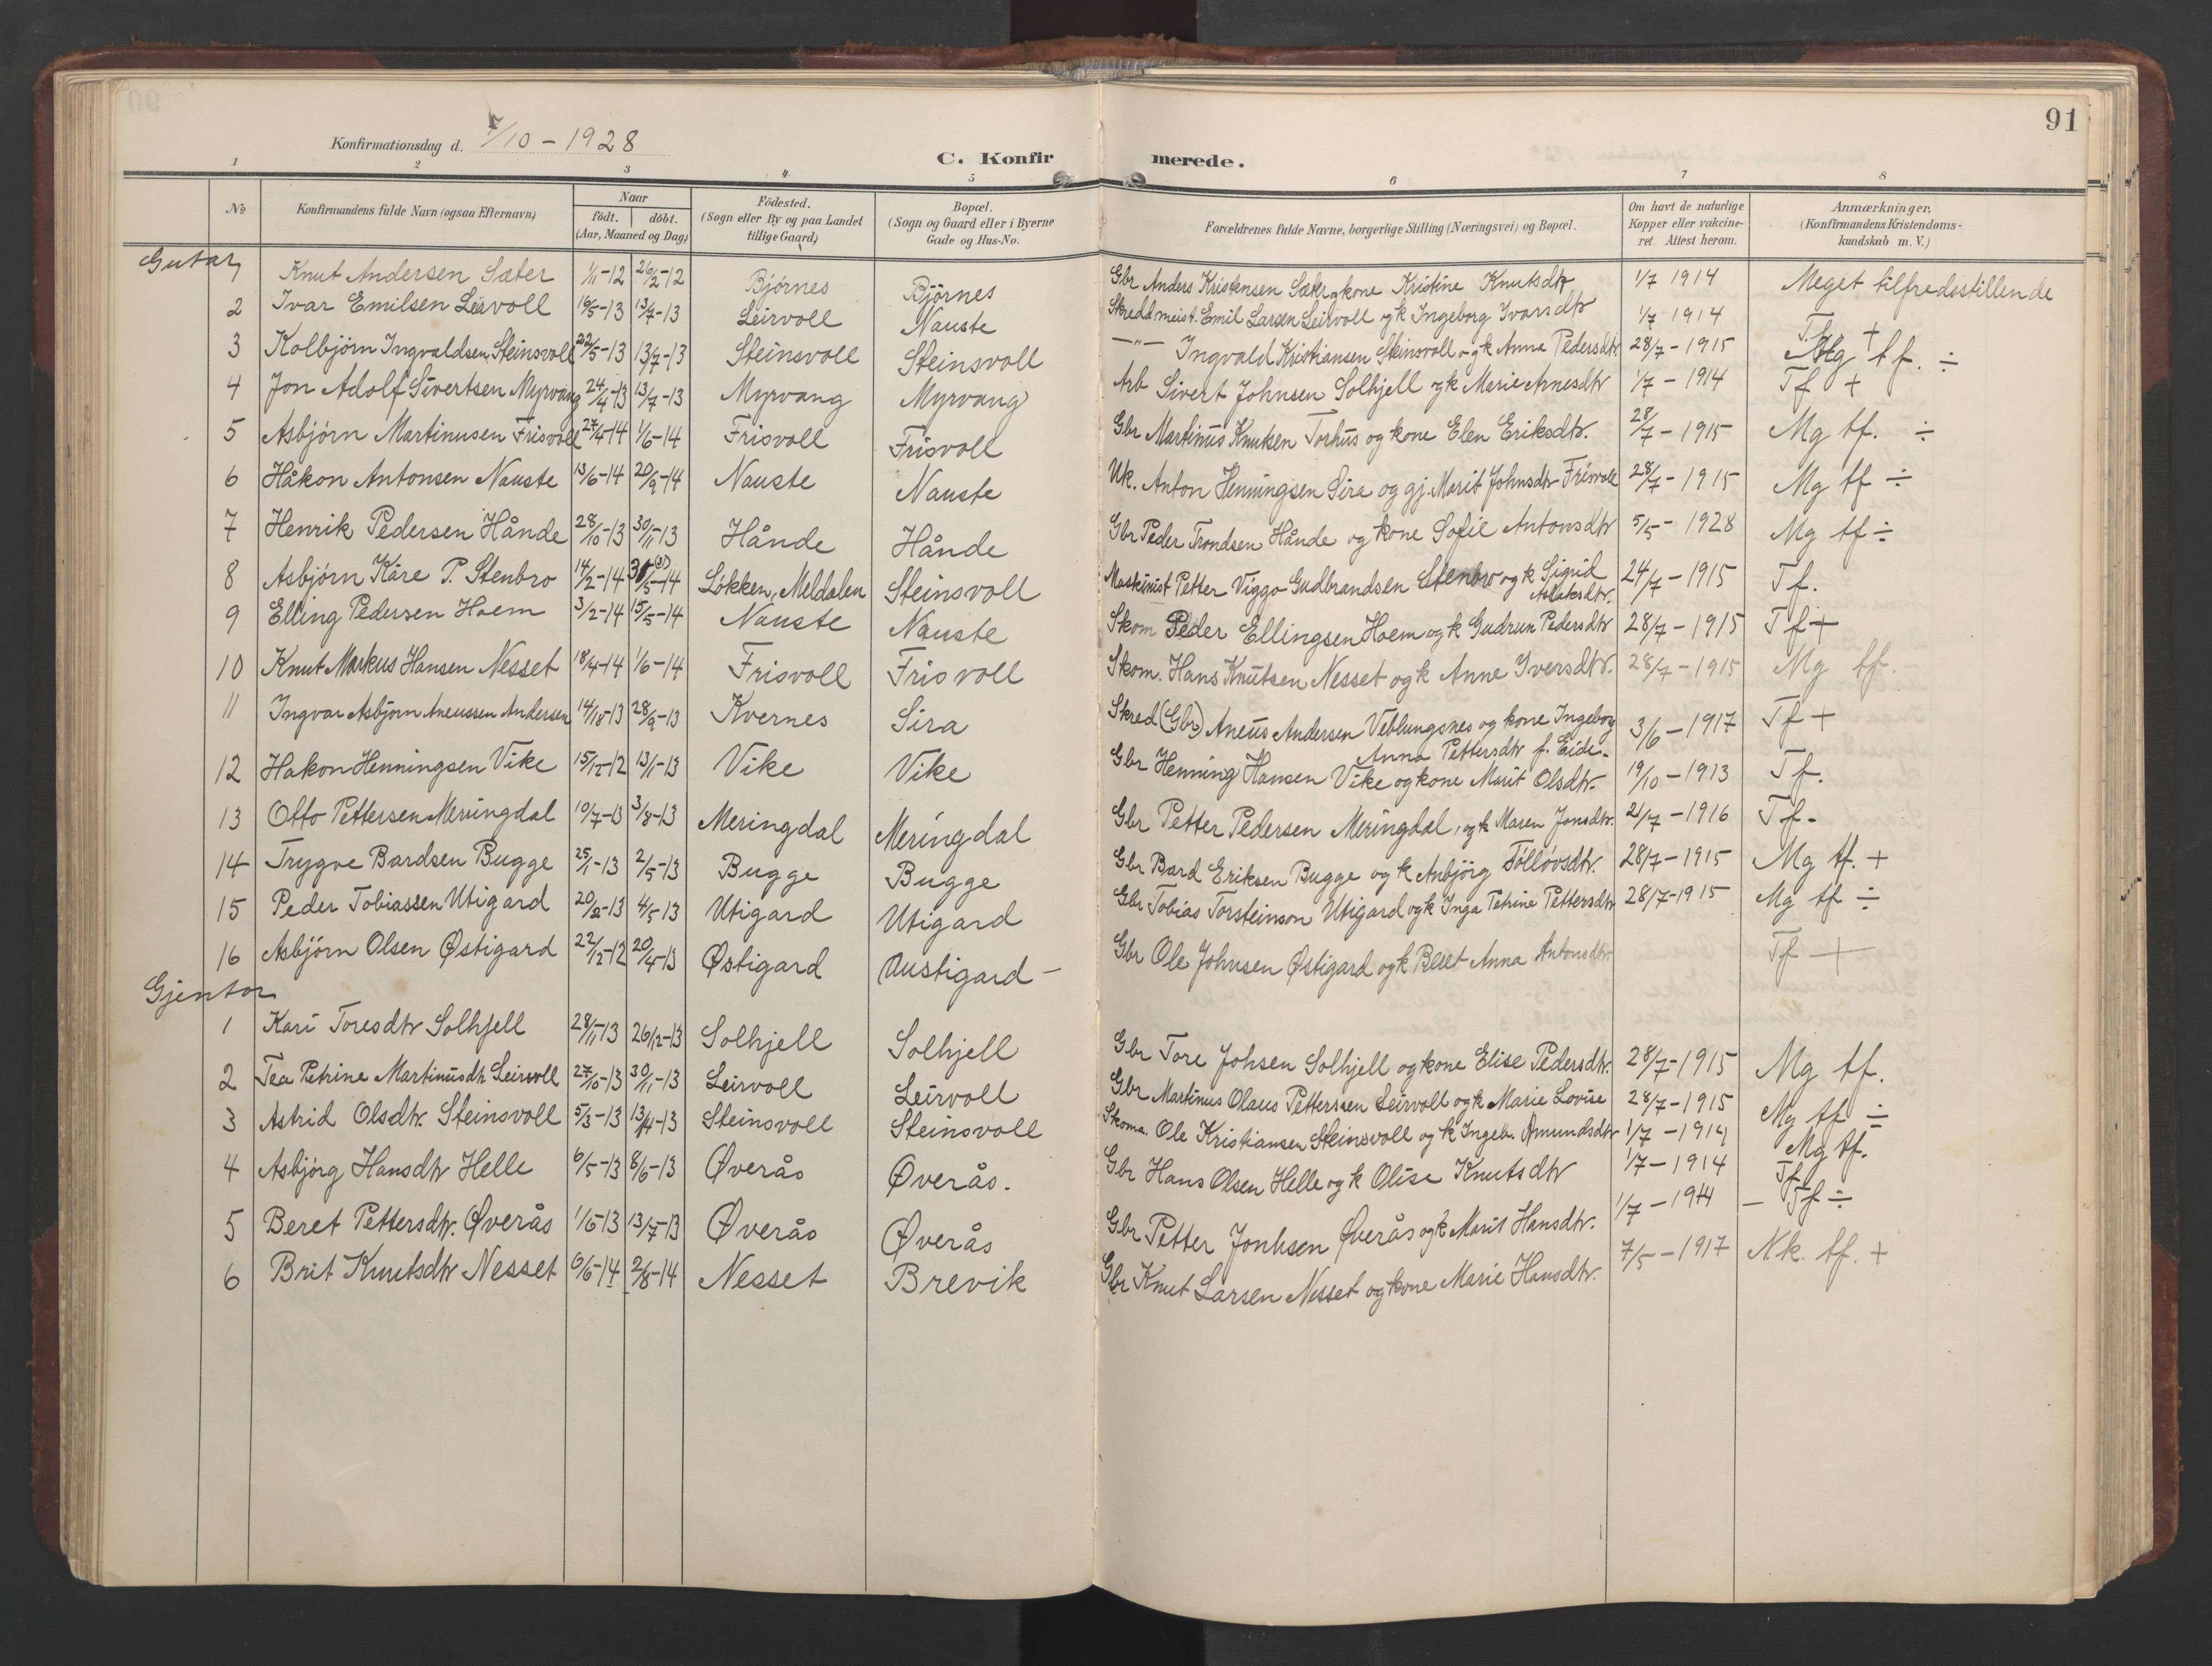 91
Konfirmationsdag d. 7/10 - 1928
C. Konfirmerede.
1 2 3 4 5 6 7 8
No
Konfirmandens fulde Navn (ogsaa Efternavn)
Naar
födt. döbt.
(Aar, Maaned og Dag)
Födested.
(Sogn eller By og paa Landet
tillige Gaard)
Bopæl.
(Sogn og Gaard eller i Byerne
Gade og Hus-No.
Forældrenes fulde Navne, borgerlige Stilling (Næringsvei) og Bopæl.
Om havt de naturlige
Kopper eller vakcine-
ret Attest herom.
Anmærkninger.
(Konfirmandens Kristendoms-
kundskab m. V.)
Gutar
1 Knut Andersen Sæter 1/11-12 26/2-12 Bjørnes Bjørnes Gbr Anders Kristensen Sæter og kone Kristine Knutsdtr 1/7 1914 Meget tilfredsstillende
2 Ivar Emilsen Leirvoll 16/5-13 13/7-13 Leirvoll Nauste Skreddmeist. Emil Larsen Leirvoll og k Ingeborg Ivarsdtr 1/7 1914 Tf +
3 Kolbjörn Ingvaldsen Steinsvoll 22/5-13 13/7-13 Steinsvoll Steinsvoll —"— Ingvald Kristiansen Steinsvoll og k Anna Pedersdtr 28/7-1915 Mg tf. ÷
4 Jon Adolf Sivertsen Myrvang 24/4-13 13/7-13 Myrvang Myrvang Arb Sivert Johnsen Solhjell og k Marie Arnesdtr 1/7-1914 Tf +
5 Asbjörn Martinusen Frisvoll 27/4-14 1/6-14 Frisvoll Frisvoll Gbr Martinus Knutsen Torhus og kone Elen Eriksdtr. 28/7-1915 Mg tf. ÷
6 Håkon Antonsen Nauste 13/6-14 20/9-14 Nauste Nauste Uk. Anton Henningsen Sira og gj. Marit Johnsdtr Frisvoll 28/7-1915 Mg tf ÷
7 Henrik Pedersen Hånde 28/10-13 30/11-13 Hånde Hånde Gbr Peder Trondsen Hånde og kone Sofie Antonsdtr 5/5-1928 Mg tf ÷
8 Asbjörn Kåre P. Stenbro 14/2-14 31/5-14 Lökken, Meldalen Steinsvoll Maskinist Petter Viggo Gudbrandsen Stenbro og k Sigrid Aslaksdtr. 24/7-1915 Tf.
9 Elling Pedersen Hoem 3/2-14 15/5-14 Nauste Nauste Skom Peder Ellingsen Hoem og k Gudrun Pedersdtr 28/7-1915 Tf +
10 Knut Markus Hansen Nesset 18/4-14 1/6-14 Frisvoll Frisvoll Skom. Hans Knutsen Nesset og k Anne Iversdtr. 28/7-1915 Mg tf.
11 Ingvar Asbjörn Aneussen Andersen 28/9-13 Kvernes Sira Skred (Gbr) Aneus Andersen Veblungsnes og kone Ingeborg Anna Pettersdtr f. Eide. 3/6-1917 Tf +
12 Hakon Henningsen Vike 15/12-12 13/1-13 Vike Vike Gbr Henning Hansen Vike og kone Marit Olsdtr. 19/10-1913 Tf.
13 Otto Pettersen Meringdal 10/7-13 3/8-13 Meringdal Meringdal Gbr Petter Pedersen Meringdal, og k Maren Jonsdtr. 21/7-1916 Tf.
14 Trygve Bardsen Bugge 25/1-13 2/5-13 Bugge Bugge Gbr Bard Eriksen Bugge og k Anbjörg Föllövsdtr. 28/7-1915 Mg tf. +
15 Peder Tobiassen Utigard 20/2-13 4/5-13 Utigard Utigard Gbr Tobias Torsteinson Utigard og k Inga Petrine Pettersdtr 28/7-1915 Mg tf ÷
16 Asbjörn Olsen Østigard 22/12-12 20/4-13 Østigard Austigard — Gbr Ole Johnsen Østigard og k Beret Anna Antonsdtr. Tf +
Gjentor
1 Kari Toresdtr Solhjell 28/11-13 26/12-13 Solhjell Solhjell Gbr Tore Johsen Solhjell og kone Elise Pedersdtr. 28/7-1915 Mg tf.
2 Tea Petrine Martinusdtr Leirvoll 27/10-13 30/11-13 Leirvoll Leirvoll Gbr Martinus Olaus Pettersen Leirvoll og k Marie Lovise 28/7-1915 Mg tf ÷
3 Astrid Olsdtr. Steinsvoll 5/3-13 13/4-13 Steinsvoll Steinsvoll Skoma. Ole Kristiansen Steinsvoll og k Ingeb. Amundsdtr 1/7-1914 Mg tf.
4 Asbjörg Hansdtr Helle 6/5-13 8/6-13 Øverås Øverås. Gbr Hans Olsen Helle og k Olise Knutsdtr 1/7-1914 Tf
5 Beret Pettersdtr. Øverås 1/6-13 13/7-13 Øverås Øverås Gbr Petter Jonhsen Øverås og k Marit Hansdtr. 1/7-1914 — Tf ÷
6 Brit Knutsdtr Nesset 6/6-14 2/8-14 Nesset Brevik Gbr Knut Larsen Nesset og kone Marie Hansdtr. 7/5-1917 Nk. tf. +